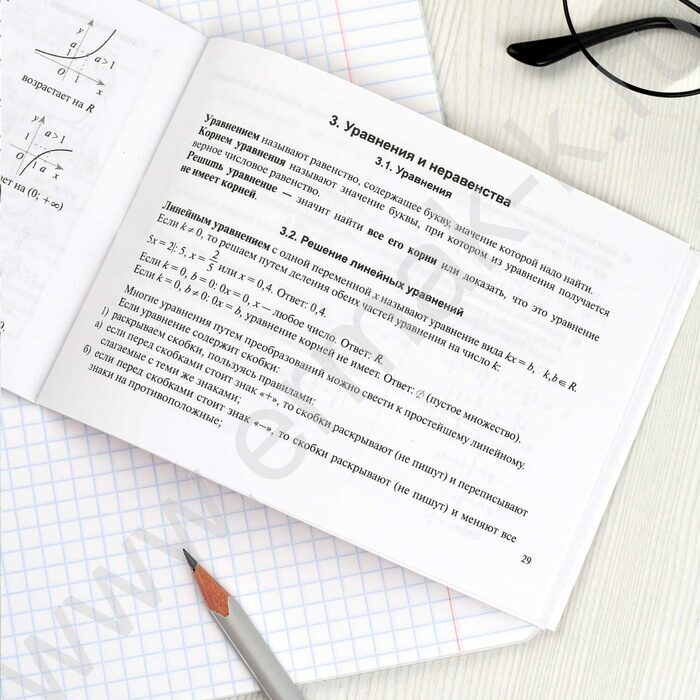 y
a>1
1
O
1
x
возрастает на R
y
a>1
1
O
1
a
x
ет на (0; +∞)
3. Уравнения и неравенства
3.1. Уравнения
Уравнением называют равенство, содержащее букву, значение которой надо найти.
Корнем уравнения называют значение буквы, при котором из уравнения получается
верное числовое равенство.
Решить уравнение — значит найти все его корни или доказать, что это уравнение
не имеет корней.
3.2. Решение линейных уравнений
Линейным уравнением с одной переменной x называют уравнение вида kx = b, k,b ∈ R.
Если k ≠ 0, то решаем путем деления обеих частей уравнения на число k:
5x = 2|: 5, x = 2/5 или x = 0,4. Ответ: 0,4.
Если k = 0, b = 0: 0x = 0, x — любое число. Ответ: R.
Если k = 0, b ≠ 0: 0x = b, уравнение корней не имеет. Ответ: ∅ (пустое множество).
Многие уравнения путем преобразований можно свести к простейшему линейному.
Если уравнение содержит скобки:
1) раскрываем скобки, пользуясь правилами:
а) если перед скобками стоит знак «+», то скобки раскрывают (не пишут) и переписывают
слагаемые с теми же знаками;
б) если перед скобками стоит знак «–», то скобки раскрывают (не пишут) и меняют все
знаки на противоположные;
29